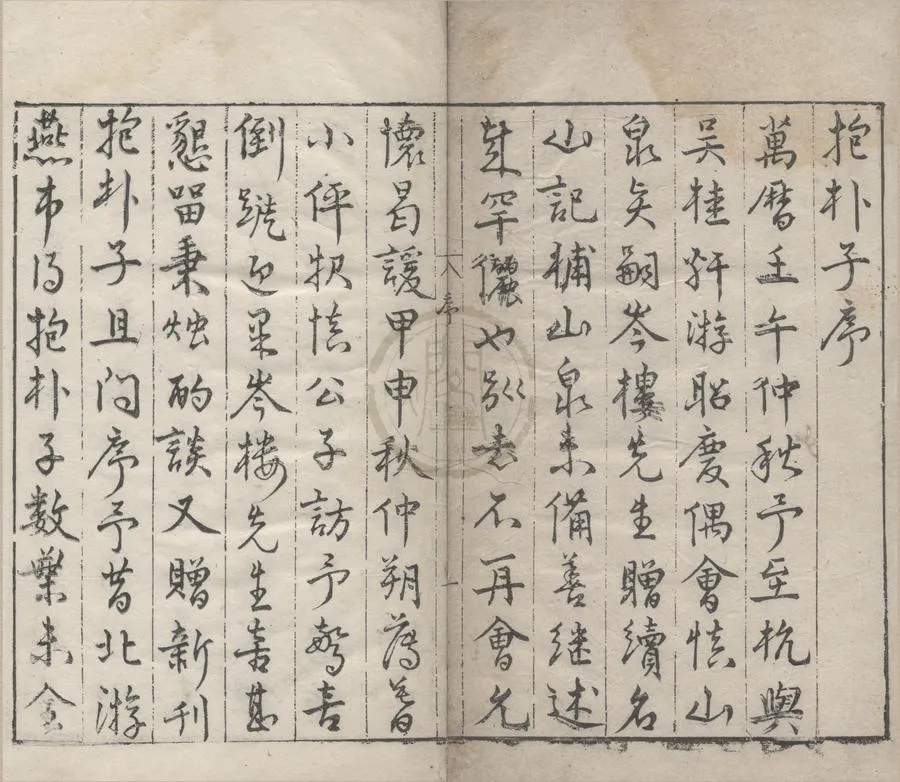 抱朴子序
萬暦壬午仲秋予至杭與
吴桂軒游昭慶偶會慎山
泉矣嗣岑樓先生贈續名
山記補山泉未備善继述
罕儷也別去不再會尤
序
一
懷曷諼甲申秋仲朔薄暮
小伻报慎公子訪予驚喜
倒蹝迎果岑楼先生喜甚
懇留秉烛酌談又贈新刊
抱朴子且问序予昔北游
燕市得抱朴子数葉未全